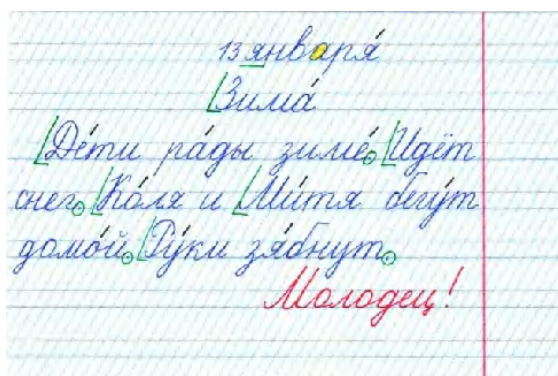 13 января́
Зима́
Де́ти ра́ды зиме́. Идёт
снег. Ко́ля и Ми́тя бегу́т
домо́й. Ру́ки зя́бнут.
Молодец!